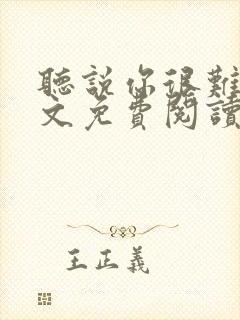 聽說你很難
文免費閱讀
王正義